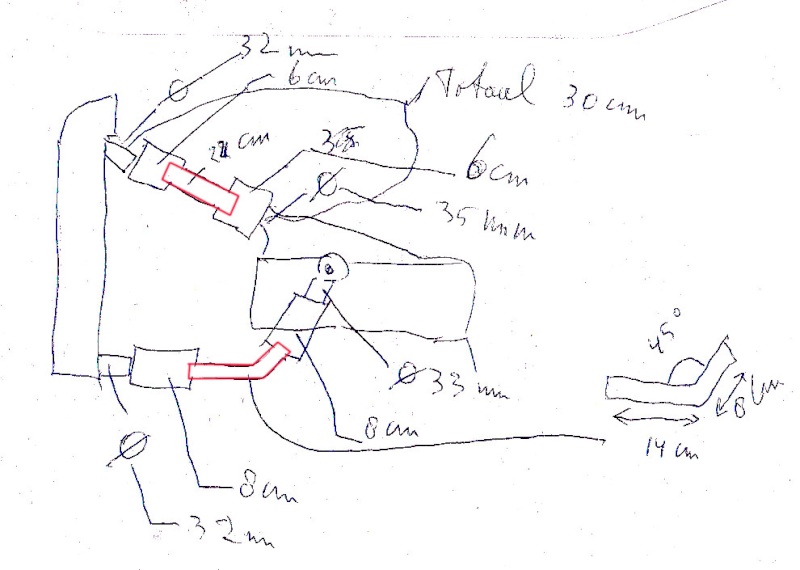 32 mm
Ø
6 cm
Totaal 30 cm
cm
6 cm
Ø
35 mm
45°
Ø 33 mm
8 cm
8 cm
14 cm
Ø
8 cm
32 mm